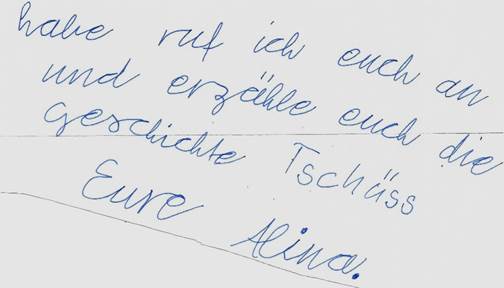 habe ruf ich euch an
und erzähle euch die
geschichte Tschüss
Eure Alina.